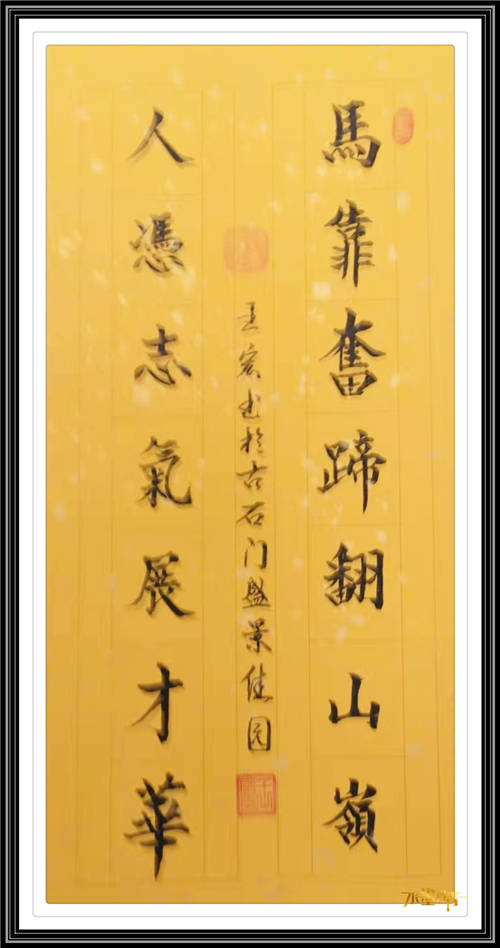 馬靠奮蹄翻山嶺
人憑志氣展才華
王宏书於古石门盛景佳园